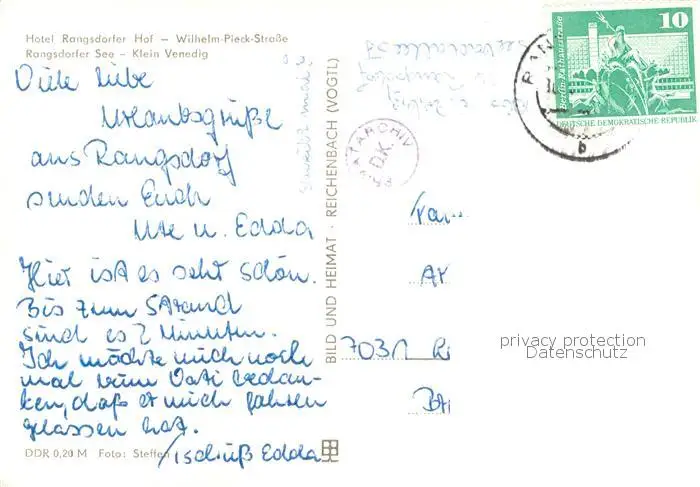 Hotel Rangsdorfer Hof – Wilhelm-Pieck-Straße
Rangsdorfer See – Klein Venedig
Viele liebe
Urlaubsgrüße
aus Rangsdorf
senden Euch
Ute u. Edda
Hier ist es sehr schön.
Bis zum Strand
sind es 2 Minuten.
Ich möchte mich noch
mal beim Vati bedan-
ken, daß er mich fahren
gelassen hat.
Tschüß Edda
DDR 0,20 M Foto: Steffen
BILD UND HEIMAT · REICHENBACH (VOGTL)
ARCHIV
D.K.
10
Berlin, Rathausstraße
DEUTSCHE DEMOKRATISCHE REPUBLIK
RAN
b
Fam
7031
privacy protection
Datenschutz